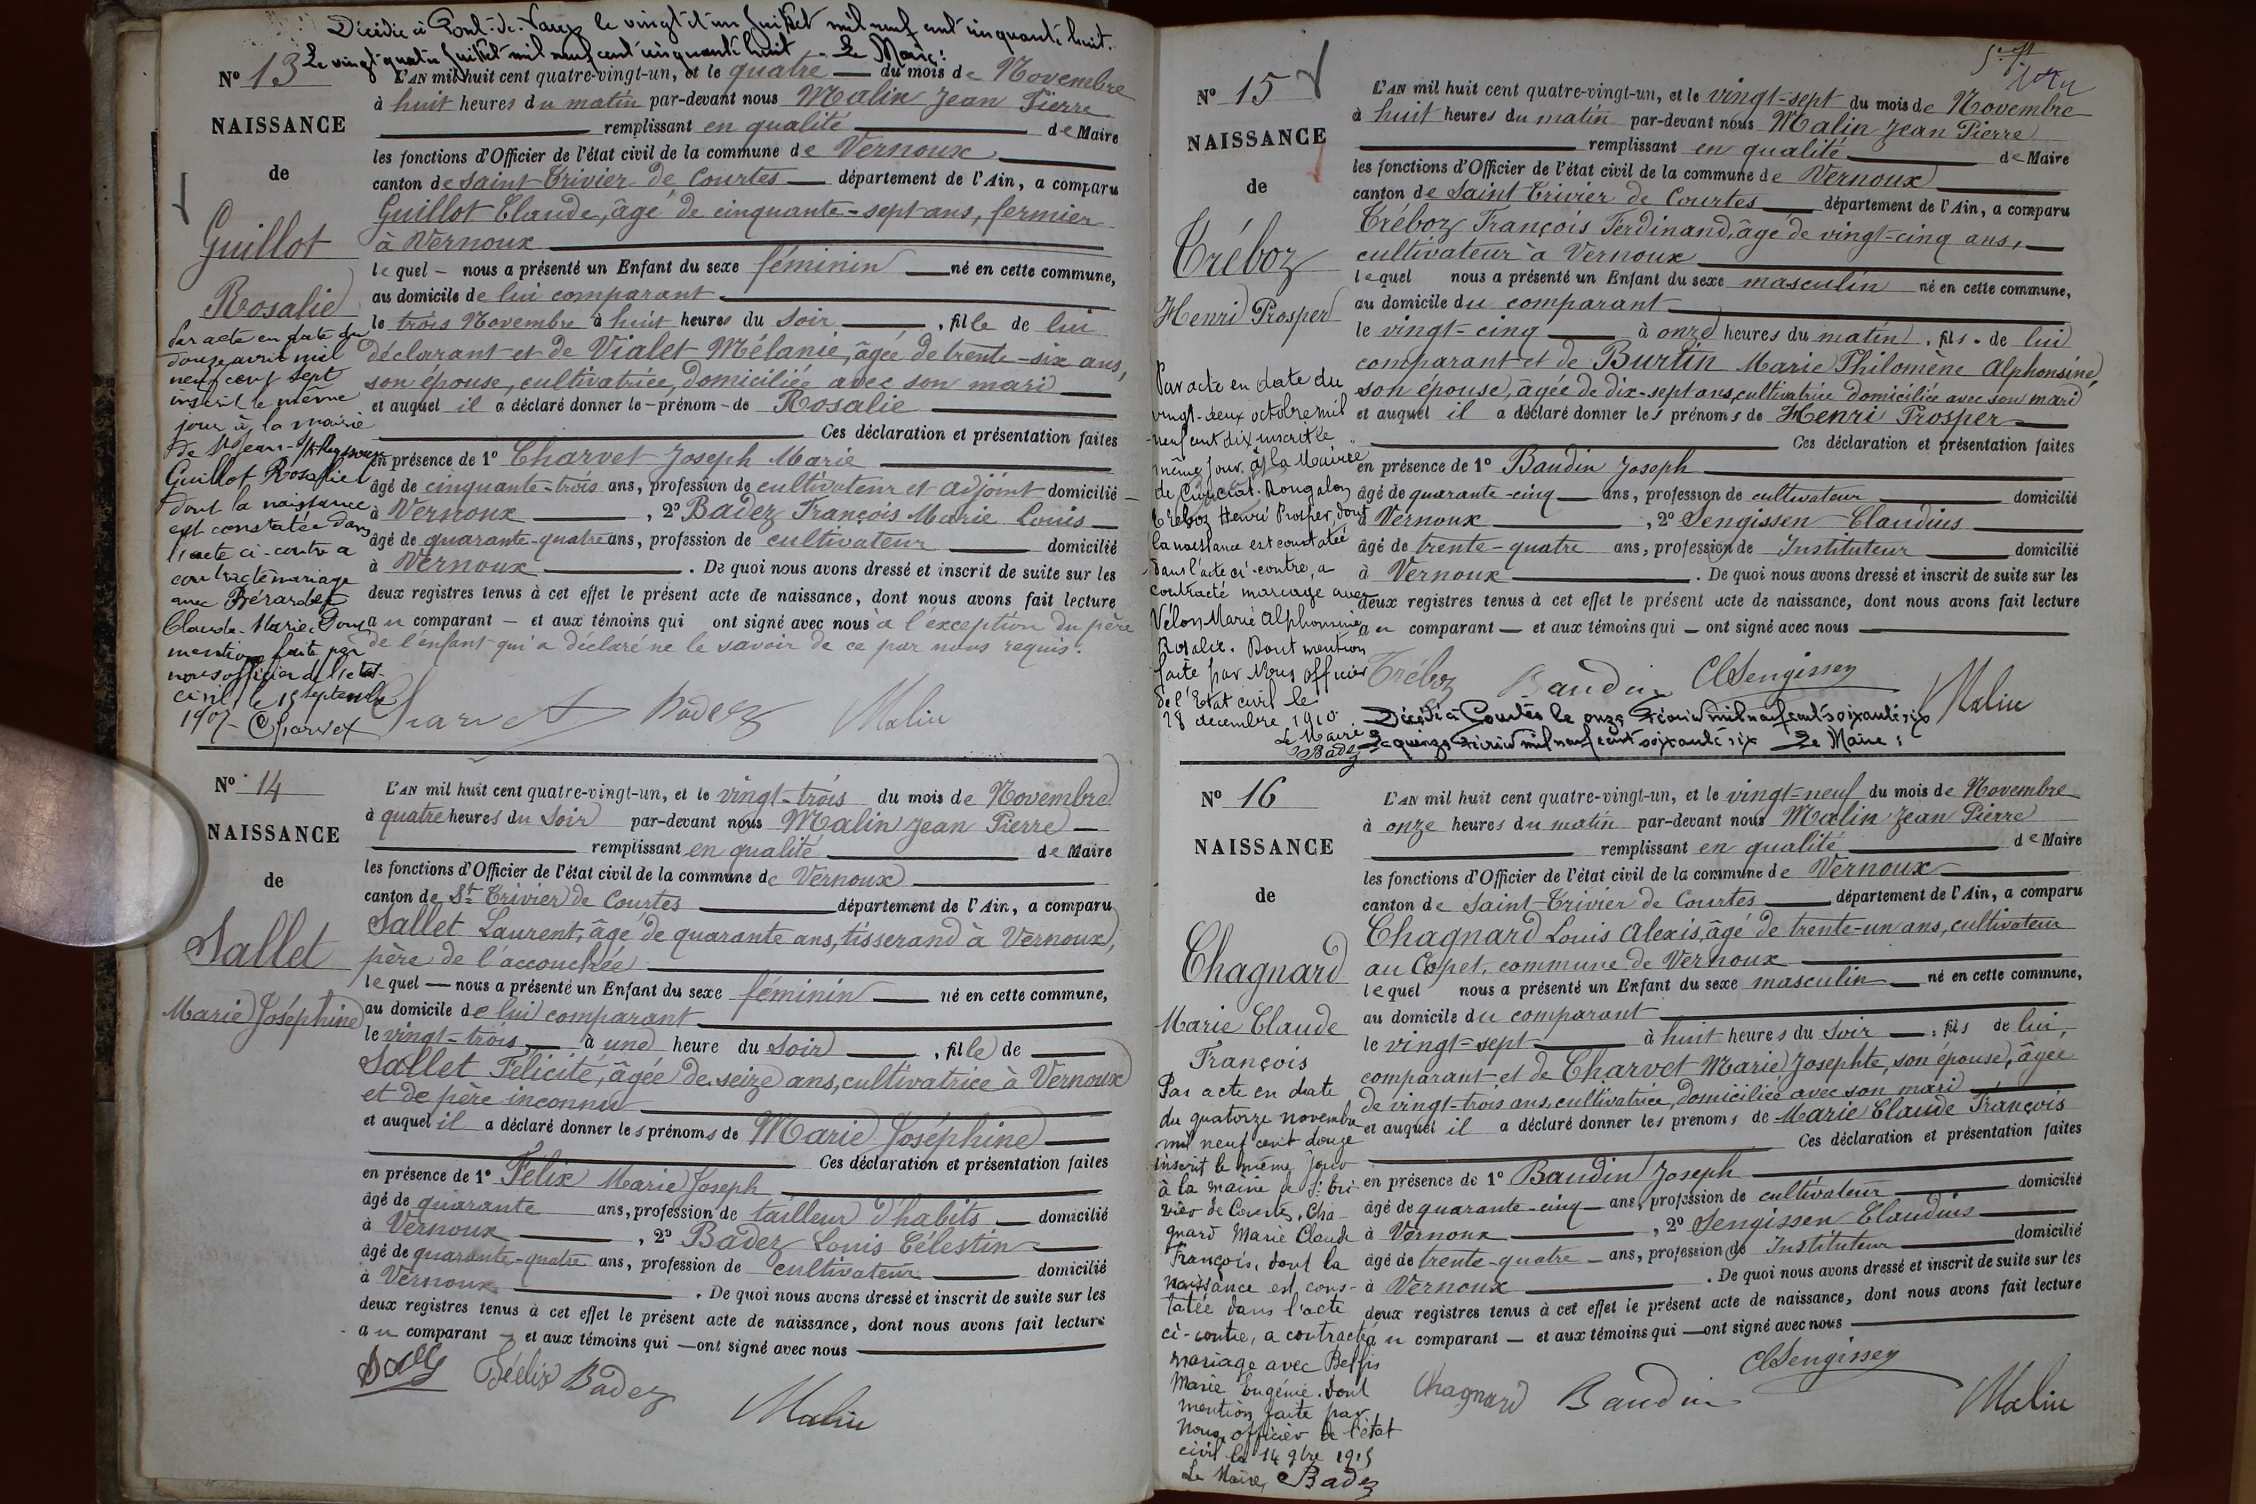 Décédée à Pont-de-Vaux le vingt et un Juillet mil neuf cent cinquante huit.
Le vingt quatre Juillet mil neuf cent cinquante huit. Le Maire:
N° 13
NAISSANCE
de
Guillot
Rosalie
Par acte en date du
douze avril mil
neuf cent sept
inscrit le même
jour à la mairie
de St Jean-s/Reyssouze
Guillot Rosalie
dont la naissance
est constatée dans
l'acte ci-contre a
contracté mariage
avec
Claude-Marie
mention faite par
nous officier de l'état-
civil, le 15 septembre
1907- Charvet
L'AN mil huit cent quatre-vingt-un, et le quatre du mois de Novembre
à huit heures du matin par-devant nous Malin Jean Pierre
remplissant en qualité de Maire
les fonctions d'Officier de l'état civil de la commune de Vernoux
canton de Saint-Trivier de Courtes département de l'Ain, a comparu
Guillot Claude, âgé de cinquante-sept ans, fermier
à Vernoux
lequel nous a présenté un Enfant du sexe féminin né en cette commune,
au domicile de lui comparant
le trois Novembre à huit heures du soir, fille de lui
déclarant et de Vialet Mélanie, âgée de trente-six ans,
son épouse, cultivatrice, domiciliée avec son mari
et auquel il a déclaré donner le prénom de Rosalie
Ces déclaration et présentation faites
en présence de 1° Charvet Joseph Marie
âgé de cinquante-trois ans, profession de cultivateur et adjoint domicilié
à Vernoux, 2° Badez François Marie Louis
âgé de quarante-quatre ans, profession de cultivateur domicilié
à Vernoux. De quoi nous avons dressé et inscrit de suite sur les
deux registres tenus à cet effet le présent acte de naissance, dont nous avons fait lecture
au comparant et aux témoins qui ont signé avec nous à l'exception du père
de l'enfant qui a déclaré ne le savoir de ce par nous requis.
Charvet Badez Malin
N° 14
NAISSANCE
de
Sallet
Marie Joséphine
L'AN mil huit cent quatre-vingt-un, et le vingt-trois du mois de Novembre
à quatre heures du soir par-devant nous Malin Jean Pierre
remplissant en qualité de Maire
les fonctions d'Officier de l'état civil de la commune de Vernoux
canton de St Trivier de Courtes département de l'Ain, a comparu
Sallet Laurent, âgé de quarante ans, tisserand à Vernoux,
père de l'accouchée
lequel nous a présenté un Enfant du sexe féminin né en cette commune,
au domicile de lui comparant
le vingt-trois à une heure du soir, fille de
Sallet Félicité, âgée de seize ans, cultivatrice à Vernoux
et de père inconnu
et auquel il a déclaré donner les prénoms de Marie Joséphine
Ces déclaration et présentation faites
en présence de 1° Félix Marie Joseph
âgé de quarante ans, profession de tailleur d'habits domicilié
à Vernoux, 2° Badez Louis Célestin
âgé de quarante-quatre ans, profession de cultivateur domicilié
à Vernoux. De quoi nous avons dressé et inscrit de suite sur les
deux registres tenus à cet effet le présent acte de naissance, dont nous avons fait lecture
au comparant et aux témoins qui ont signé avec nous
Félix Badez
Malin
N° 15
NAISSANCE
de
Tréboz
Henri Prosper
Par acte en date du
vingt-deux octobre mil
neuf cent dix inscrit le
même jour à la Mairie
de Curciat-Dongalon
Tréboz Henri Prosper dont
la naissance est constatée
dans l'acte ci-contre, a
contracté mariage avec
Vélon Marie Alphonsine
Rosalie. Dont mention
faite par Nous officier
de l'Etat civil le
28 décembre 1910
Le Maire
Badez
L'AN mil huit cent quatre-vingt-un, et le vingt-sept du mois de Novembre
à huit heures du matin par-devant nous Malin Jean Pierre
remplissant en qualité de Maire
les fonctions d'Officier de l'état civil de la commune de Vernoux
canton de Saint Trivier de Courtes département de l'Ain, a comparu
Tréboz François Ferdinand, âgé de vingt-cinq ans,
cultivateur à Vernoux
lequel nous a présenté un Enfant du sexe masculin né en cette commune,
au domicile du comparant
le vingt-cinq à onze heures du matin, fils de lui
comparant et de Burtin Marie Philomène Alphonsine,
son épouse, âgée de dix-sept ans, cultivatrice domiciliée avec son mari
et auquel il a déclaré donner les prénoms de Henri Prosper
Ces déclaration et présentation faites
en présence de 1° Baudin Joseph
âgé de quarante-cinq ans, profession de cultivateur domicilié
à Vernoux, 2° Sengissen Claudius
âgé de trente-quatre ans, profession de Instituteur domicilié
à Vernoux. De quoi nous avons dressé et inscrit de suite sur les
deux registres tenus à cet effet le présent acte de naissance, dont nous avons fait lecture
au comparant et aux témoins qui ont signé avec nous
Tréboz Baudin Cl Sengissen Malin
Décédé à Courtes le onze Février mil neuf cent soixante six
Le quinze Février mil neuf cent soixante six Le Maire:
N° 16
NAISSANCE
de
Chagnard
Marie Claude
François
Par acte en date
du quatorze novembre
mil neuf cent douze
inscrit le même jour
à la mairie de St Tri
vier de Courtes, Cha-
gnard Marie Claude
François, dont la
naissance est cons-
tatée dans l'acte
ci-contre, a contracté
mariage avec Beffis
Marie Eugénie. Dont
mention faite par
Nous officier de l'état
civil le 14 9bre 1915
Le Maire, Badez
L'AN mil huit cent quatre-vingt-un, et le vingt-neuf du mois de Novembre
à onze heures du matin par-devant nous Malin Jean Pierre
remplissant en qualité de Maire
les fonctions d'Officier de l'état civil de la commune de Vernoux
canton de Saint-Trivier de Courtes département de l'Ain, a comparu
Chagnard Louis Alexis, âgé de trente-un ans, cultivateur
au Copet, commune de Vernoux
lequel nous a présenté un Enfant du sexe masculin né en cette commune,
au domicile du comparant
le vingt-sept à huit heures du soir, fils de lui,
comparant et de Charvet Marie Josephte, son épouse, âgée
de vingt-trois ans, cultivatrice, domiciliée avec son mari
et auquel il a déclaré donner les prénoms de Marie Claude François
Ces déclaration et présentation faites
en présence de 1° Baudin Joseph
âgé de quarante-cinq ans, profession de cultivateur domicilié
à Vernoux, 2° Sengissen Claudius
âgé de trente-quatre ans, profession de Instituteur domicilié
à Vernoux. De quoi nous avons dressé et inscrit de suite sur les
deux registres tenus à cet effet le présent acte de naissance, dont nous avons fait lecture
au comparant et aux témoins qui ont signé avec nous
Chagnard Baudin Cl Sengissen Malin